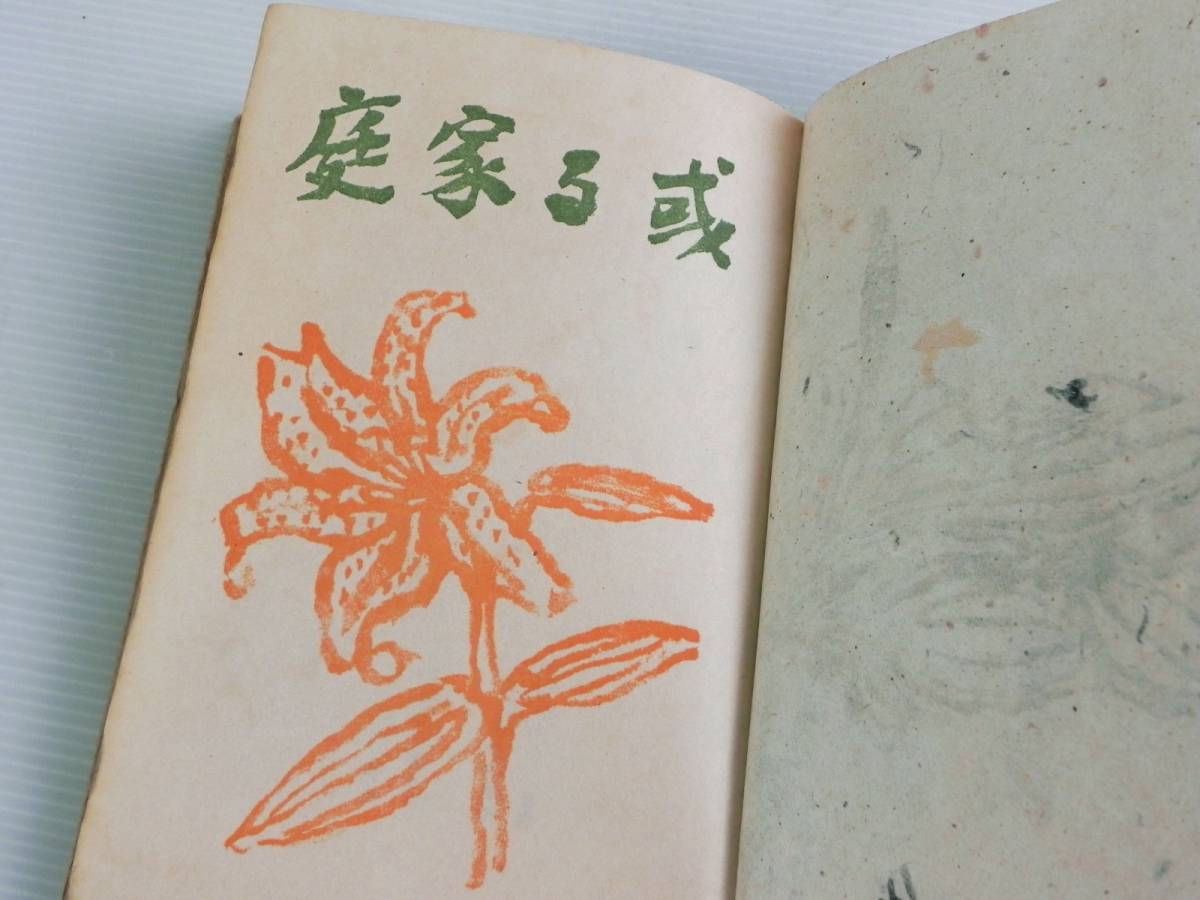 或る家庭